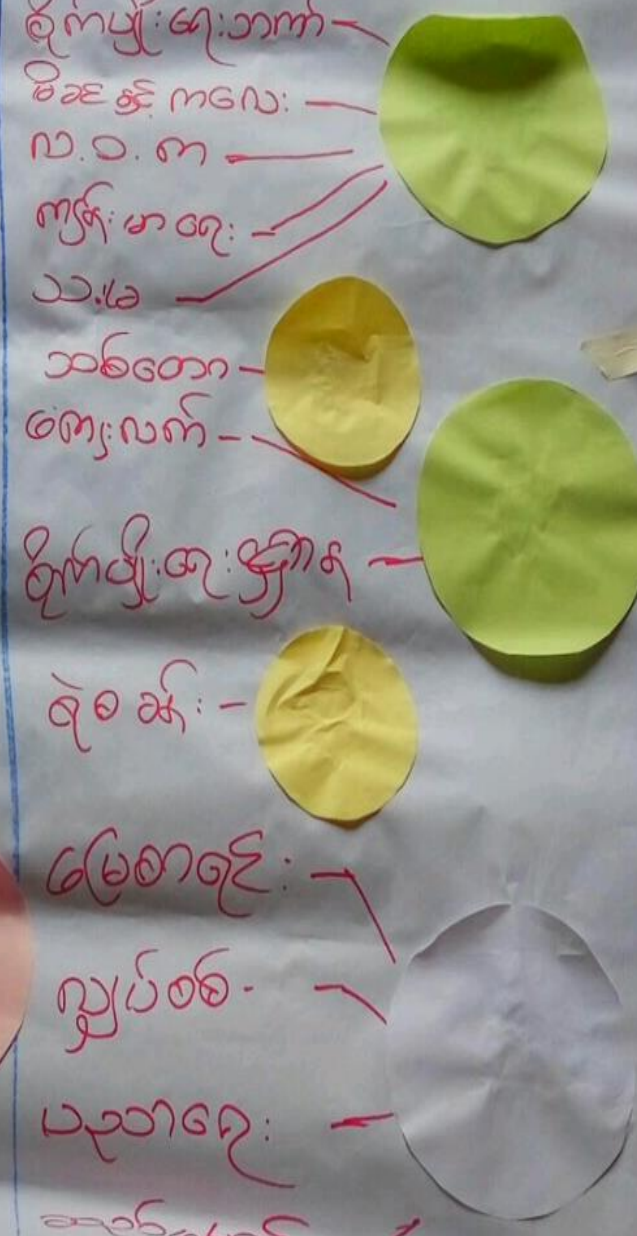 စိုက်ပျိုးရေးဘဏ်
မိခင်နှင့် ကလေး
လ.ဝ.က
ကျန်းမာရေး
သစ်တော
ကျေးလက်
စိုက်ပျိုးရေးဦးစီးဌာန
ရဲစခန်း
မြေစာရင်း
လျှပ်စစ်
ပညာရေး